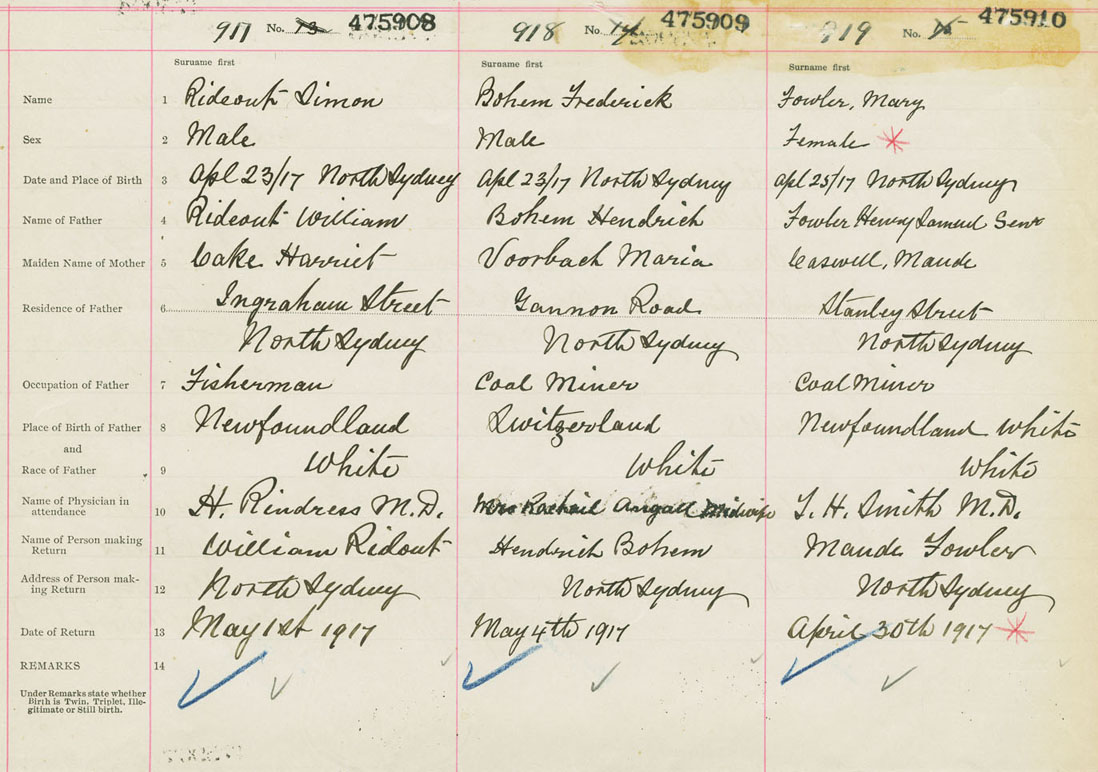 917 No. 13 475908 918 No. 14 475909 919 No. 15 475910
Surname first Surname first Surname first
Name 1 Rideout Simon Bohem Frederick Fowler, Mary
Sex 2 Male Male Female
Date and Place of Birth 3 Apl 23/17 North Sydney Apl 23/17 North Sydney Apl 25/17 North Sydney
Name of Father 4 Rideout William Bohem Hendrich Fowler Henry Samuel Senr
Maiden Name of Mother 5 Cake Harriet Voorbach Maria Caswell, Maude
Residence of Father 6 Ingraham Street Gannon Road Stanley Street
North Sydney North Sydney North Sydney
Occupation of Father 7 Fisherman Coal Miner Coal Miner
Place of Birth of Father 8 Newfoundland Switzerland Newfoundland White
and
Race of Father 9 White White White
Name of Physician in
attendance 10 H. Rindress M.D. Mrs Rachail Angall Midwife T. H. Smith M.D.
Name of Person making
Return 11 William Ridout Hendrich Bohem Maude Fowler
Address of Person mak-
ing Return 12 North Sydney North Sydney North Sydney
Date of Return 13 May 1st 1917 May 4th 1917 April 30th 1917
REMARKS 14
Under Remarks state whether
Birth is Twin, Triplet, Ille-
gitimate or Still birth.